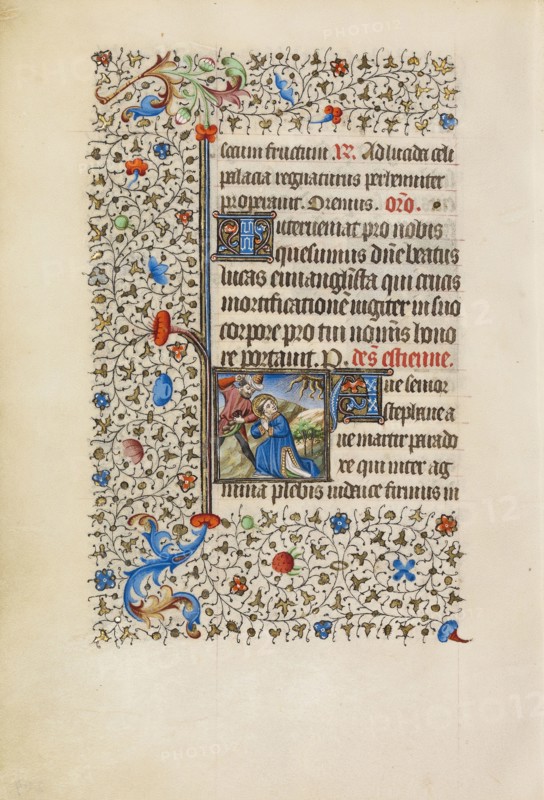 secum fructum .R. Ad lucida celi
palacia regnaturus perhenniter
properauit. Oremus. oro.
Interueniat pro nobis
quesumus dne beatus
lucas euuangelista qui crucis
mortificatione iugiter in suo
corpore pro tui nominis hono
re portauit. P. des estienne.
Aue senior
stephane a
ue martir parado
xe qui inter ag
mina plebis iudaice firmus in
PHOTO12